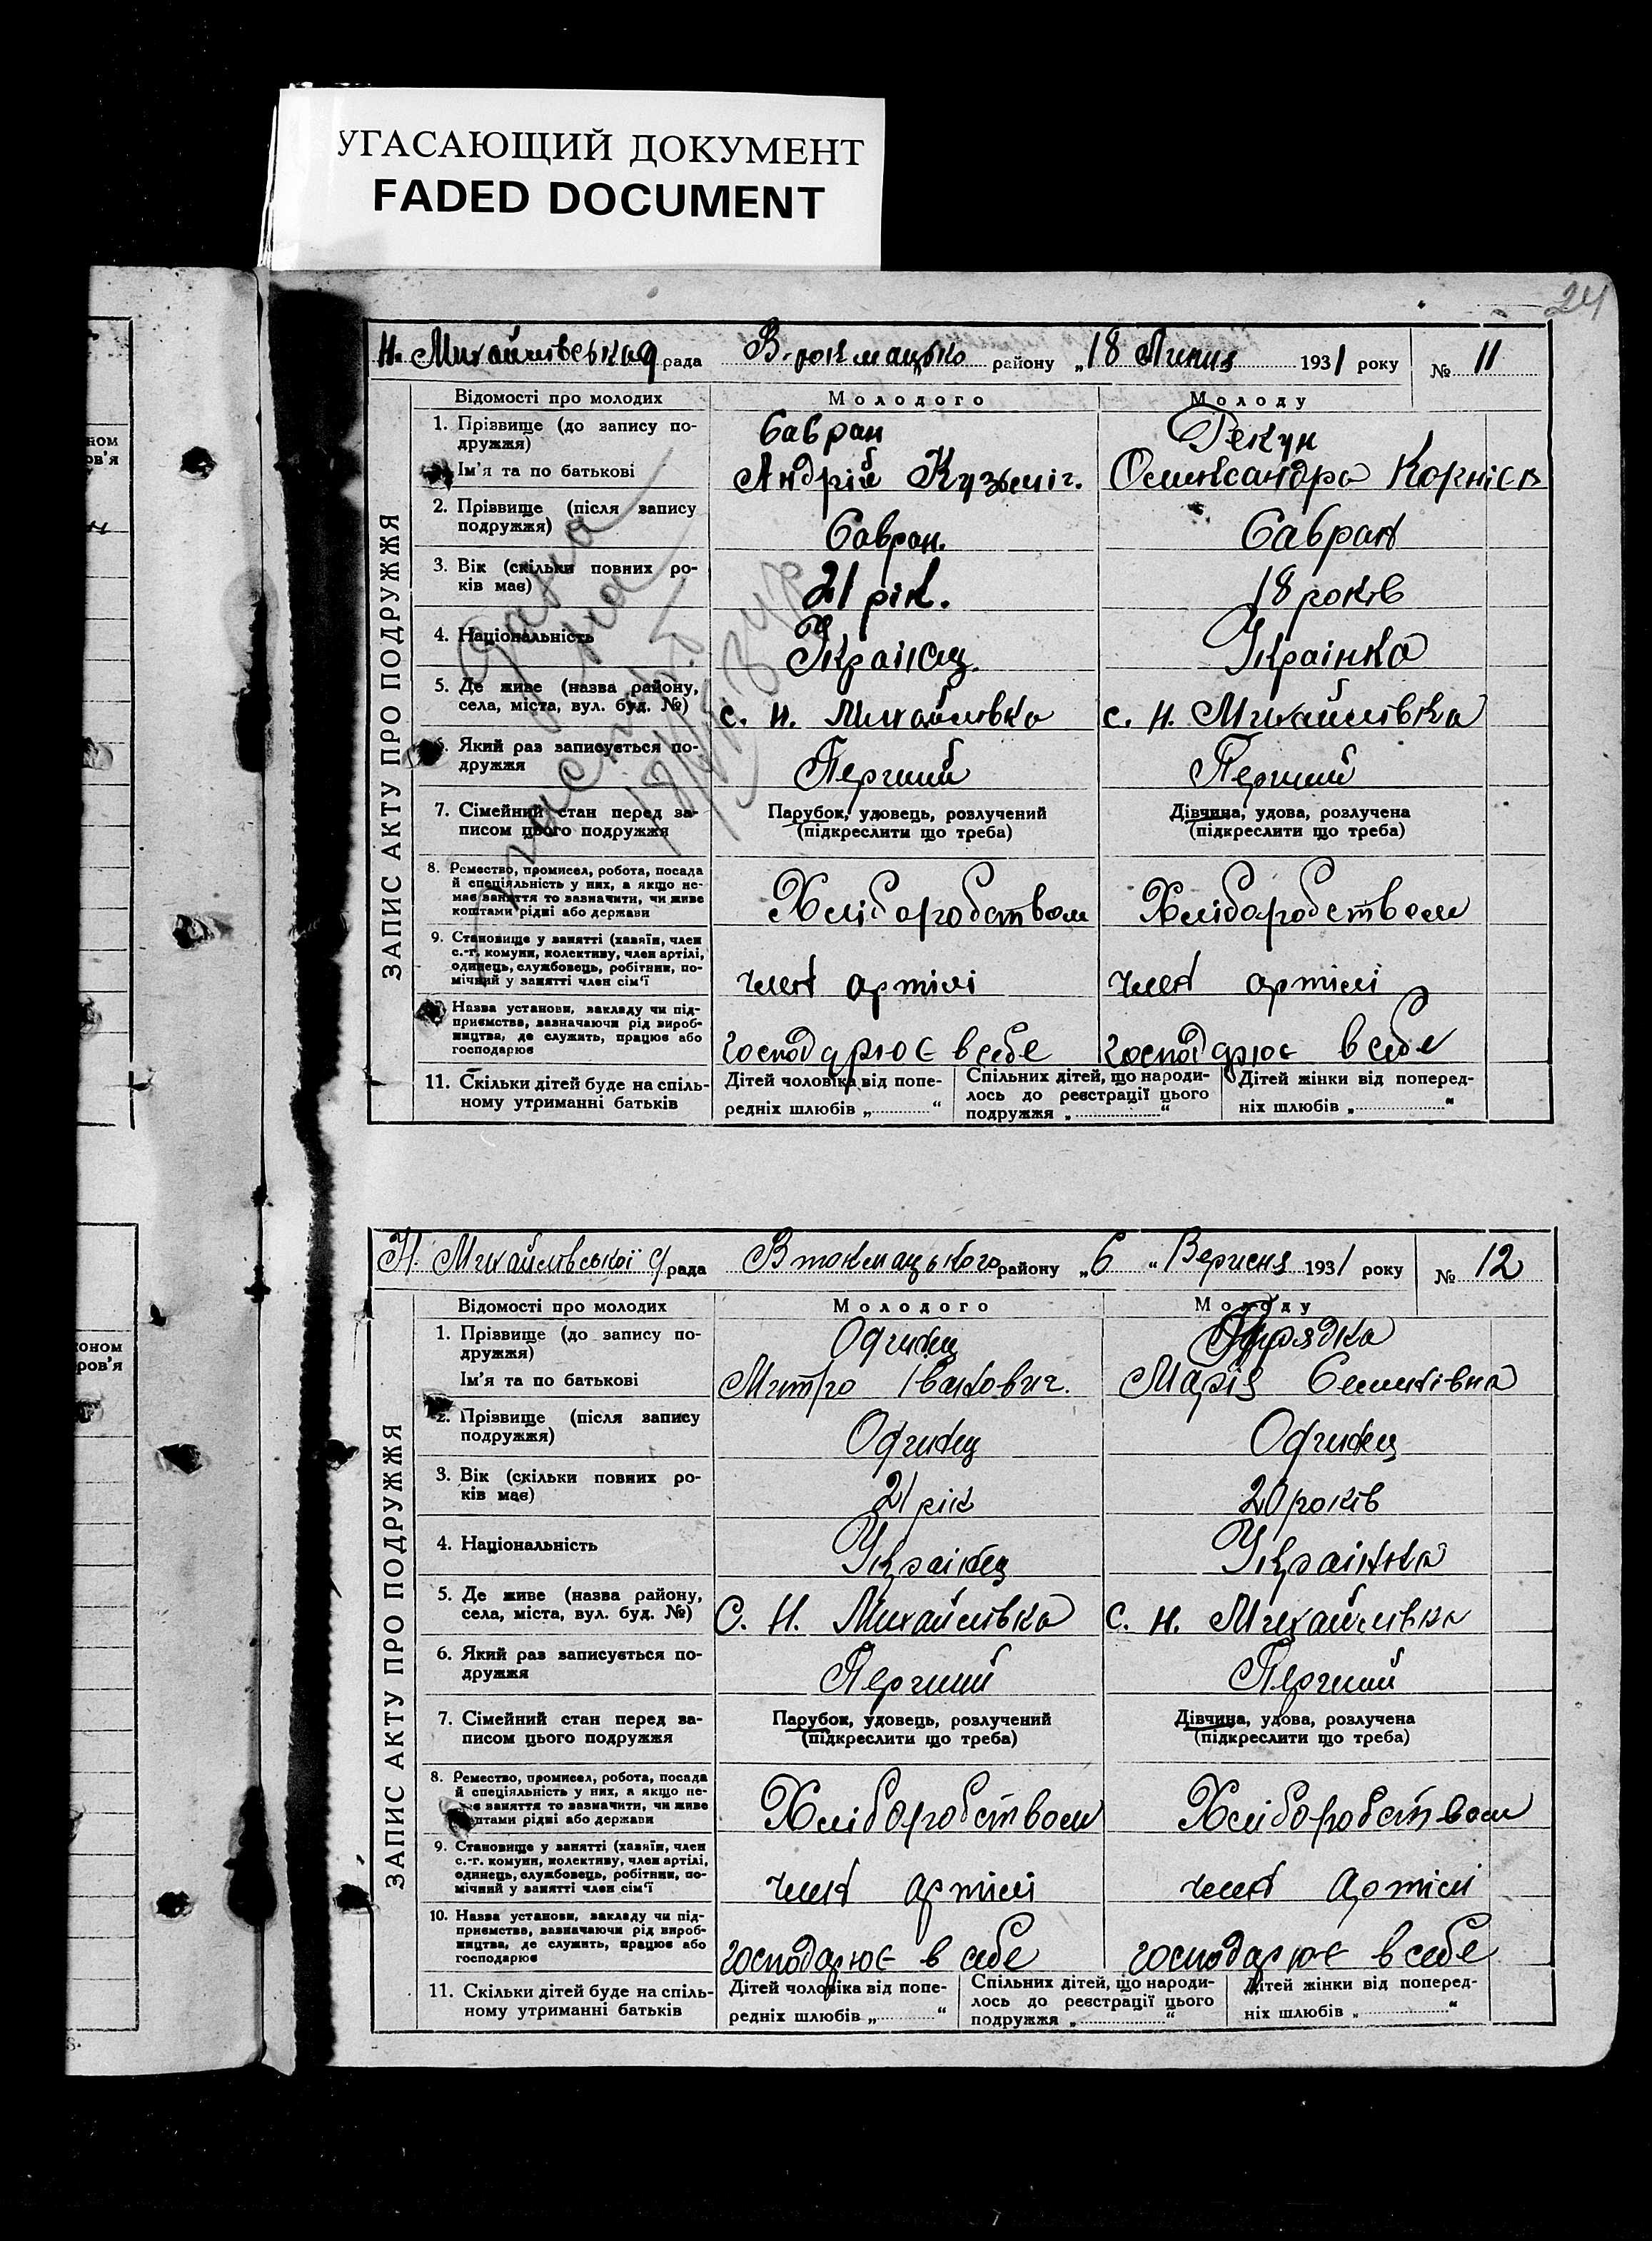 УГАСАЮЩИЙ ДОКУМЕНТ
FADED DOCUMENT
24
Н. Михайлівська рада В-токмацько району „18 Липня 1931 року № 11
ЗАПИС АКТУ ПРО ПОДРУЖЖЯ
Відомості про молодих Молодого Молоду
1. Прізвище (до запису подружжя) Савран Рекун
Ім'я та по батькові Андрій Кузьміч. Олександра Корнієв
2. Прізвище (після запису подружжя) Савран. Савран
3. Вік (скільки повних років має) 21 рік. 18 років
4. Національність Українец. Українка
5. Де живе (назва району, села, міста, вул. буд. №) с. Н. Михайлівка с. Н. Михайлівка
6. Який раз записується подружжя Перший Перший
7. Сімейний стан перед записом цього подружжя Парубок, удовець, розлучений (підкреслити що треба) Дівчина, удова, розлучена (підкреслити що треба)
8. Ремество, промисел, робота, посада й спеціяльність у них, а якщо немає заняття то зазначити, чи живе коштами рідні або держави Хліборобством Хліборобством
9. Становище у занятті (хазяїн, член с.-г. комуни, колективу, член артілі, одинець, службовець, робітник, помічний у занятті член сім'ї член артілі член артілі
Назва установи, закладу чи підприємства, зазначаючи рід виробництва, де служить, працює або господарює господарює в себе господарює в себе
11. Скільки дітей буде на спільному утриманні батьків Дітей чоловіка від попередніх шлюбів „ “ Спільних дітей, що народилось до реєстрації цього подружжя „ “ Дітей жінки від попередніх шлюбів „ “
Н. Михайлівської рада Втокмацького району „6 “ Вересня 1931 року № 12
ЗАПИС АКТУ ПРО ПОДРУЖЖЯ
Відомості про молодих Молодого Молоду
1. Прізвище (до запису подружжя) Одинец
Ім'я та по батькові Митро Іванович. Марія Семенівна
2. Прізвище (після запису подружжя) Одинец Одинец
3. Вік (скільки повних років має) 21 рік 20 років
4. Національність Українец Українка
5. Де живе (назва району, села, міста, вул. буд. №) С. Н. Михайлівка С. Н. Михайлівка
6. Який раз записується подружжя Перший Перший
7. Сімейний стан перед записом цього подружжя Парубок, удовець, розлучений (підкреслити що треба) Дівчина, удова, розлучена (підкреслити що треба)
8. Ремество, промисел, робота, посада й спеціяльність у них, а якщо не- заняття то зазначити, чи живе коштами рідні або держави Хліборобством Хліборобством
9. Становище у занятті (хазяїн, член с.-г. комуни, колективу, член артілі, одинець, службовець, робітник, помічний у занятті член сім'ї член артілі член артілі
10. Назва установи, закладу чи підприємства, зазначаючи рід виробництва, де служить, працює або господарює господарює в себе господарює в себе
11. Скільки дітей буде на спільному утриманні батьків Дітей чоловіка від попередніх шлюбів „ “ Спільних дітей, що народилось до реєстрації цього подружжя „ “ Дітей жінки від попередніх шлюбів „ “